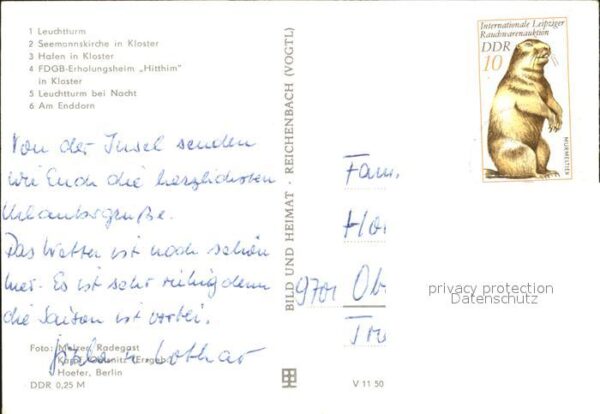 1 Leuchtturm
2 Seemannskirche in Kloster
3 Hafen in Kloster
4 FDGB-Erholungsheim „Hitthim"
in Kloster
5 Leuchtturm bei Nacht
6 Am Enddorn
Von der Insel senden
wir Euch die herzlichsten
Urlaubsgrüße.
Das Wetter ist noch schön
hier. Es ist sehr ruhig denn
die Saison ist vorbei.
u. Lothar
Foto: Melzer, Radegast
Hoefer, Berlin
DDR 0,25 M
BILD UND HEIMAT · REICHENBACH (VOGTL)
V 11 50
Internationale Leipziger
Rauchwarenauktion
DDR
10
MURMELTIER
Fam.
Hor
9701 Ob
Tre
privacy protection
Datenschutz